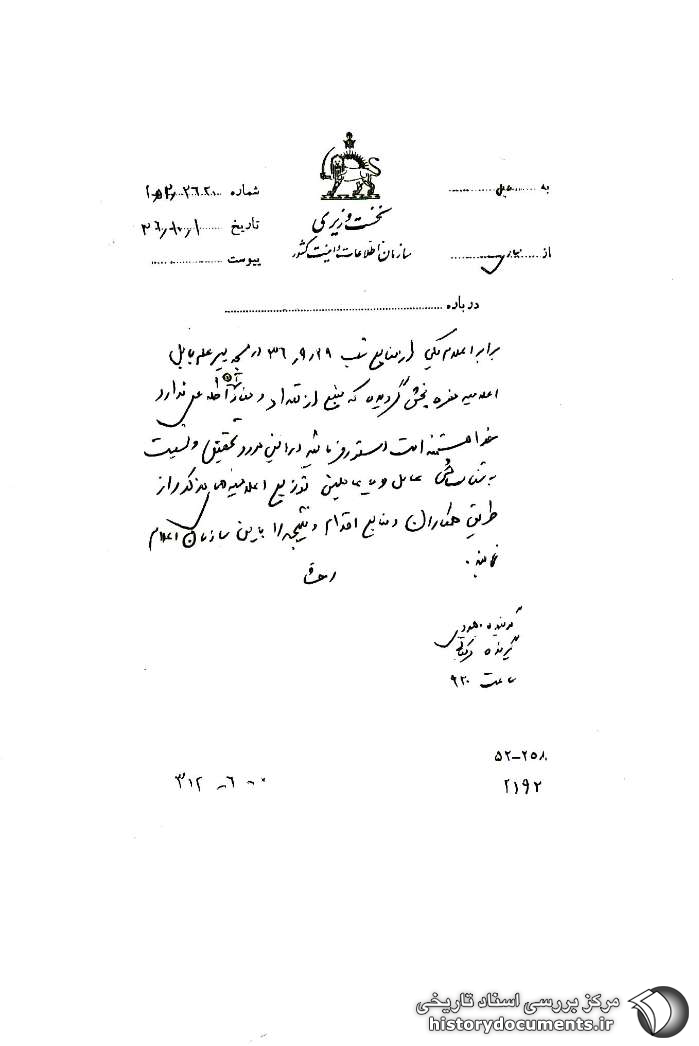 به ..... بابل
شماره ۲۶۲۰ / ه‍ ۲
نخست وزیری
تاریخ ۳۶/۱۰/۱
سازمان اطلاعات و امنیت کشور
از ..... ساری
پیوست
درباره
برابر اعلام یکی از منابع شب ۳۶/۹/۲۹ در مسجد پیر علم بابل
اعلامیه مضره پخش گردیده که منبع از تعداد و مفاد آن اطلاعی ندارد
خواهشمند است دستور فرمائید در این مورد تحقیق و نسبت
به شناسائی عامل و یا عاملین توزیع اعلامیه‌های مذکور از
طریق همکاران و منابع اقدام و نتیجه را باین سازمان اعلام
نمایند.
گوینده
گیرنده
ساعت ۹۲۰
۵۲-۲۵۸
۲۱۹۲
۳۱۲ - ۶ - ۰۰
مرکز بررسی اسناد تاریخی
historydocuments.ir